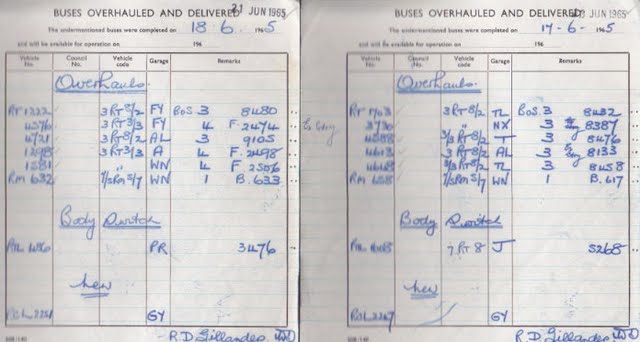 BUSES OVERHAULED AND DELIVERED
21 JUN 1965
The undermentioned buses were completed on 18.6. 1965
and will be available for operation on 196
Vehicle No. Council No. Vehicle code Garage Remarks
Overhauls.
RT 1322 3RT 8/2 FY BOS 3 8480
4576 3RT 3/3 FY 4 F. 2474
4721 3RT 8/2 AL 3 9105
1298 3RT 3/3 A 4 F. 2498
1581 " WN 4 F. 2506
RM 632 7/5RM 5/7 WN 1 B. 633
Body Switch
PR 3476
New
GY
R.D. Gillander
BUSES OVERHAULED AND DELIVERED
JUN 1965
The undermentioned buses were completed on 17-6- 1965
and will be available for operation on 196
Vehicle No. Council No. Vehicle code Garage Remarks
Overhauls.
RT 1703 3RT 8/2 TL BOS. 3 8432
" NX 3 8387
4588 3/3 RT 8/2 T 3 8476
3RT 8/2 AL 3 8133
3RT 8/2 TL 3 8458
RM 658 7/5RM 5/7 WN 1 B. 617
Body Switch
7 RT 8 J 5268
New
GY
R.D. Gillander